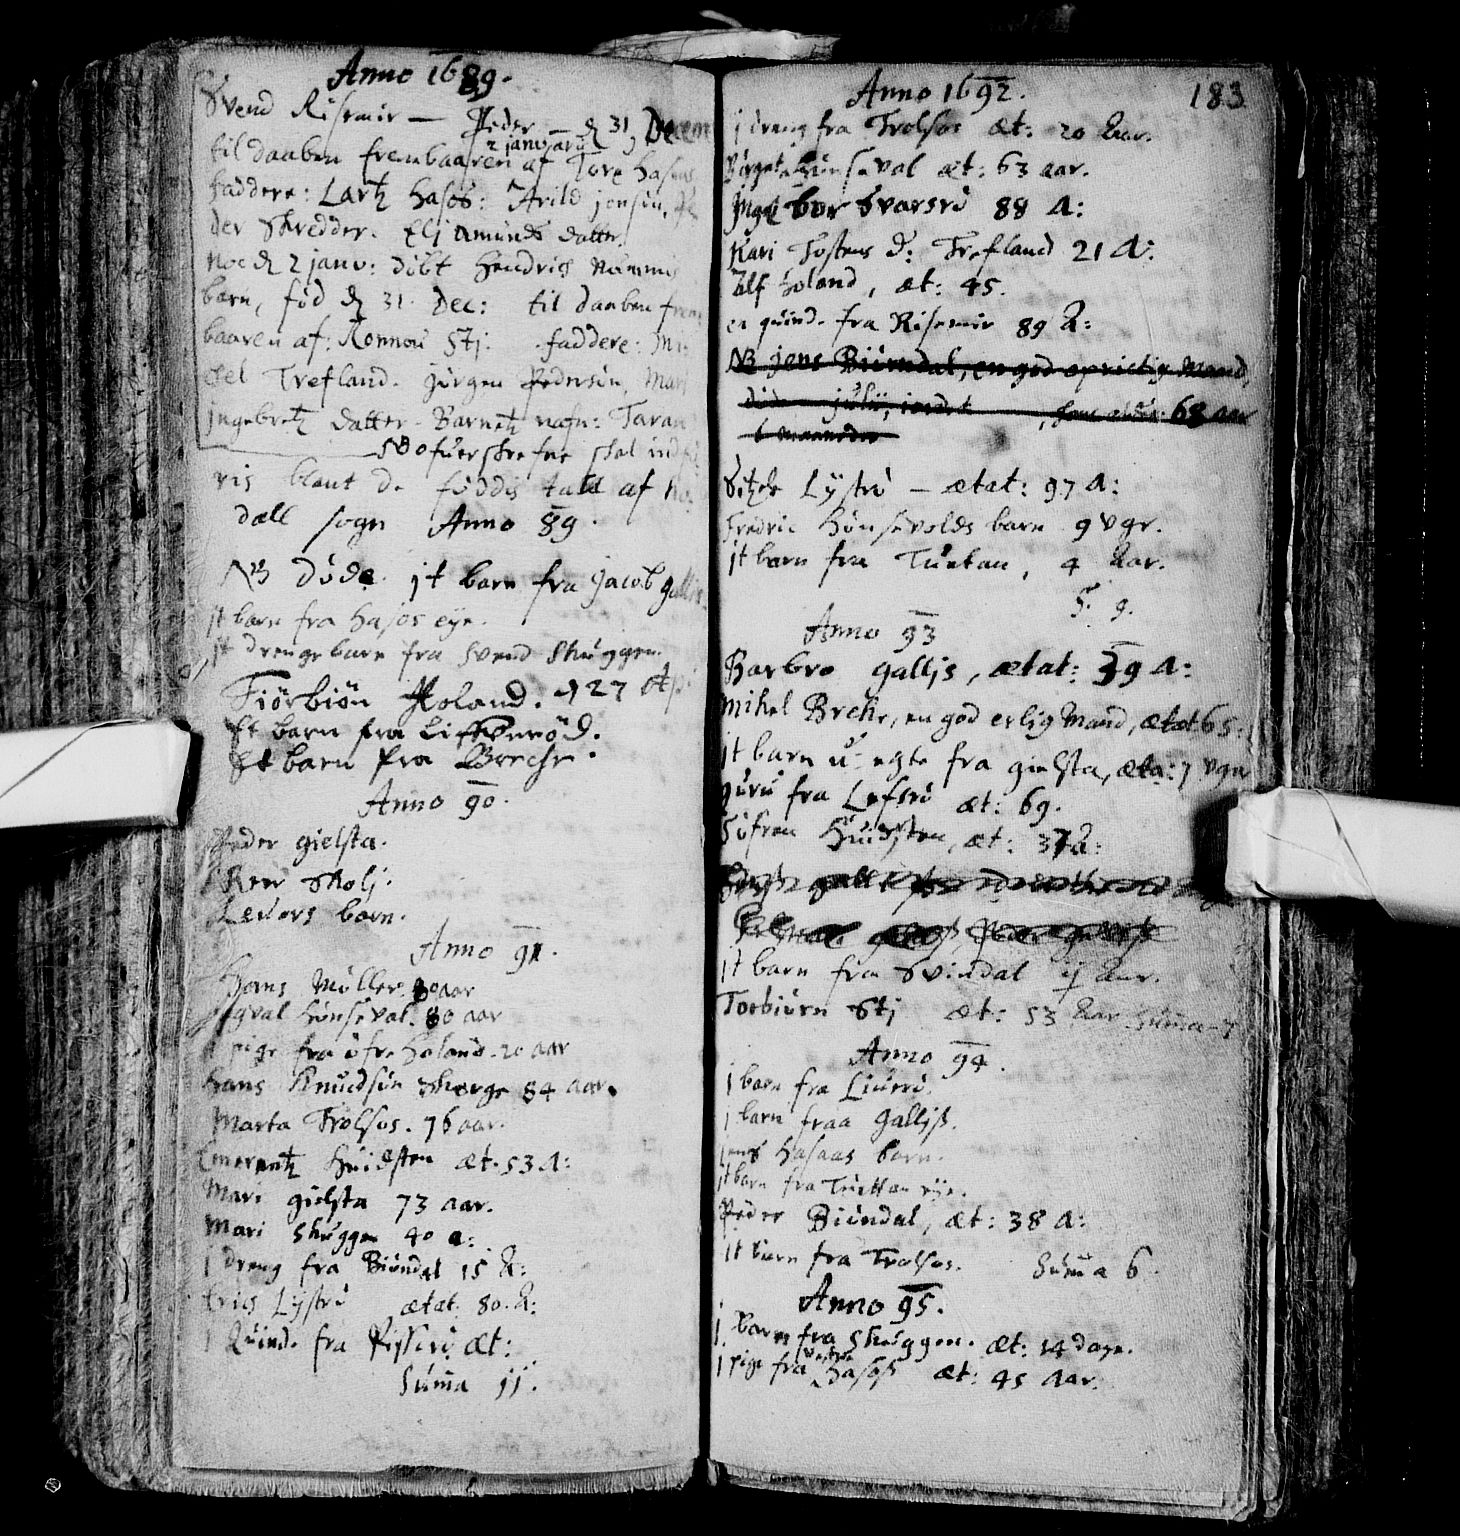 Anno 1689.
Svend Risemir — Peder — d 31, Decem
2 januarij
til daaben frembaaren af Tore Hasaas
faddere: Lartz Hasøs: Arild jensøn, Pe
der Skredder. Elj Amunds datter.
Noc d 2 janv: døbt Hendrich
barn, fød d 31. Dec: til daaben frem
baaren af: Ronnou Stj. faddere: Mi
chel Trefland. Jørgen Pedersøn, Mari
jngebretz datter. Barnetz nafn: Taran
ofuerskrefne skal indfø
ris blant deføddis tall af
dall sogn Anno 89.
NB døde. jt barn fra Jacob gallis.
jt barn fra Hasøs eye.
jt drengebarn fra Svend Skuggen.
Tiørbiøn Holand. d 27 Ap
Et barn fra Lifverød.
Et barn fra Breche.
Anno 90.
Peder gielsta.
Rier Skolj.
Levors barn.
Anno 91.
Hans Møller 80 aar
gval Hønseval. 80 aar
1 pige fra øfre Holand. 20 aar
Hans Knudsøn Skorge 84 aar.
Marta Trolsos. 76 aar.
Emerentz Huidsten æt. 53 A:
Mari gielsta 73 aar.
Mari Skuggen 40 a:
1 dreng fra Biøndal 15 A:
Erich Lystrù ætat. 80. A:
1 Quinde fra æt:
Suma 11.
183
Anno 1692.
1 dreng fra Trolsos æt: 20 Aar.
Birgeta Hønseval æt: 63 aar.
Ingebor Svarsrù 88 A:
Kari Tostens d: Trefland 21 A:
Alf Holand, æt: 45.
en quinde fra Risemir 89 A:
NB jens Biørndal, en god oprictig Mand,
døde julij, jordet , hans alder: 68 aar
6 maaneder
Sitzele Lystrù — ætat: 97 A:
Fredric Hønsevolds barn 9 vgr.
jt barn fra Tuetan, 4 Aar.
S. 9.
Anno 93
Barbro gallis, ætat: 39 A:
Mikel Breke, en god erlig Mand, ætat 65:
jt barn u-egte fra gielsta, æta: 7 vgu
guru fra Lefsrù æt: 69.
Søfren Huidsten, æt: 37 A:
jt barn fra Svindal ij Aar.
Torbiørn Stj æt: 53 Aar Suma-7
Anno 94.
1 barn fra Liuerù.
1 barn fraa Gallis.
jens Hasaas barn.
jt barn fra Tuettan eye.
Peder Biøndal, æt: 38 A:
jt barn fra Trolsos. Suma 6.
Anno 95.
1 barn fra Skuggen. æt: 14 dage.
1 pige fra vestre Hasøs æt: 45 Aar.